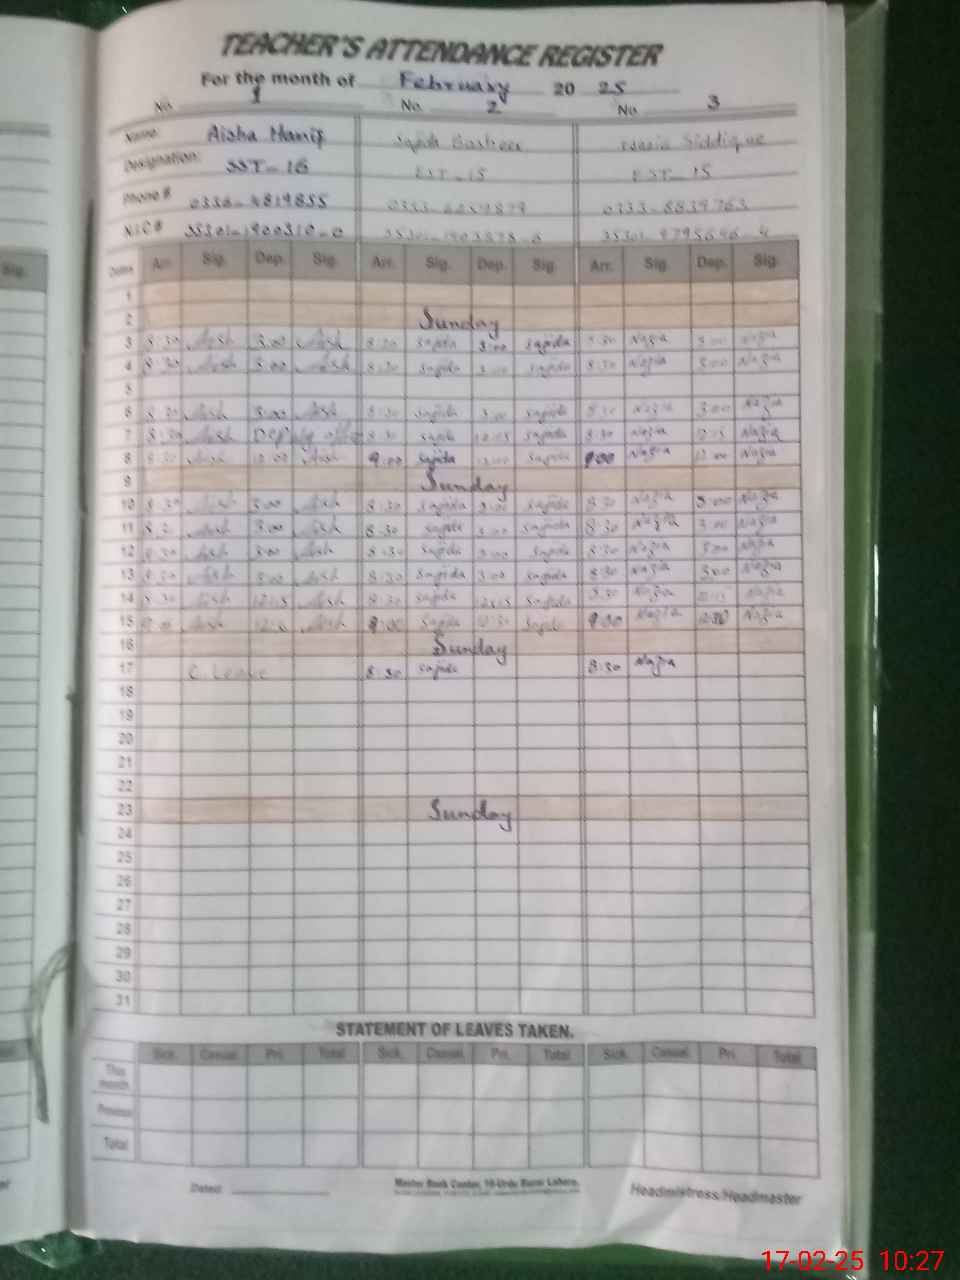 TEACHER'S ATTENDANCE REGISTER
For the month of February 20 25
No. 1 No. 2 No. 3
Name: Aisha Hanif Sajida Basheer Siddique
Designation: SST-16 EST-15 EST-15
Phone # 0336-4819855 0333-8839763
N.I.C #
Dates Arr. Sig. Dep. Sig. Arr. Sig. Dep. Sig. Arr. Sig. Dep. Sig.
1
2 Sunday
3 8:30 Aish 3:00 Aish 8:30 Sajida 3:00 Sajida 8:30 Nazia 3:00 Nazia
4 8:30 Aish 3:00 Aish 8:30 Sajida 3:00 Sajida 8:30 Nazia 3:00 Nazia
5
6 8:30 Aish 3:00 Aish 8:30 Sajida 3:00 Sajida 8:30 Nazia 3:00 Nazia
7 8:30 Aish 8:30 Sajida 12:15 Sajida 8:30 Nazia 12:15 Nazia
8 8:30 Aish 12:00 Aish 9:00 Sajida 12:00 Sajida 9:00 Nazia 12:00 Nazia
9 Sunday
10 8:30 Aish 3:00 Aish 8:30 Sajida 3:00 Sajida 8:30 Nazia 3:00 Nazia
11 8:30 Aish 3:00 Aish 8:30 Sajida 3:00 Sajida 8:30 Nazia 3:00 Nazia
12 8:30 Aish 3:00 Aish 8:30 Sajida 3:00 Sajida 8:30 Nazia 3:00 Nazia
13 8:30 Aish 3:00 Aish 8:30 Sajida 3:00 Sajida 8:30 Nazia 3:00 Nazia
14 8:30 Aish 12:15 Aish 8:30 Sajida 12:15 Sajida 8:30 Nazia 12:15 Nazia
15 9:00 Aish Aish 9:00 Sajida 12:30 Sajida 9:00 Nazia 12:30 Nazia
16 Sunday
17 C. Leave 8:30 Sajida 8:30 Nazia
18
19
20
21
22
23 Sunday
24
25
26
27
28
29
30
31
STATEMENT OF LEAVES TAKEN.
Sick. Casual. Pri. Total Sick. Casual. Pri. Total Sick. Casual. Pri. Total
This month
Previous
Total
Dated: Master Book Center, 10-Urdu Bazar Lahore. Headmistress/Headmaster
17-02-25 10:27